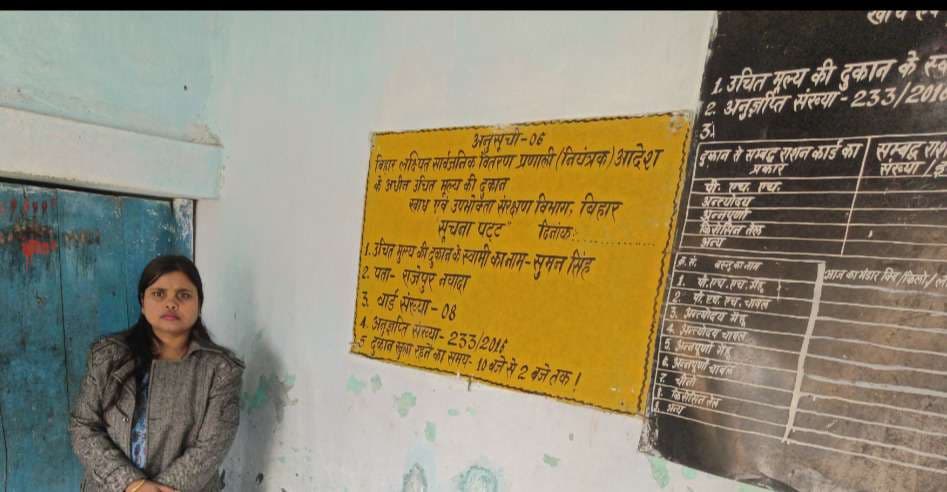 अनुसूची-06
बिहार लक्षित सार्वजनिक वितरण प्रणाली (नियंत्रक) आदेश
के अधीन उचित मूल्य की दुकान
खाद्य एवं उपभोक्ता संरक्षण विभाग, बिहार
सूचना पट्ट" दिनांक:
1. उचित मूल्य की दुकान के स्वामी का नाम-सुमन सिंह
2. पता- राजेपुर नवादा
3. वार्ड संख्या - 08
4. अनुज्ञप्ति संख्या-233/2016
5 दुकान खुला रहने का समय- 10 बजे से 2 बजे तक !
1. उचित मूल्य की दुकान के
2. अनुज्ञप्ति संख्या-233/201
3.
दुकान से सम्बद्ध राशन कार्ड का
प्रकार
सम्बद्ध
संख्या
पी. एच. एच.
अन्त्योदय
अन्नपूर्णा
किरोसिन तेल
अन्य
क्र. सं. वस्तु का नाम
1. पी.एच.एच. गेहूं
2 पी. एच. एच. चावल
3. अन्त्योदय गेहूं
4. अन्त्योदय चावल
5. अन्नपूर्णा गेहूं
6. अन्नपूर्णा चावल
7. चीनी
8. किरोसिन तेल
अन्य